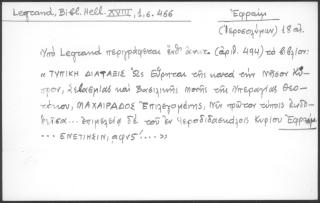 Legrand, Bibl. Hell. XVIII, 1, σ. 466
Ἐφραίμ
(Ἱεροσολύμων) 18 αἰ.
Ὑπὸ Legrand περιγράφεται ὑπ' ἀριθ. (ἀρ. 494) τὸ βιβλίον:
« ΤΥΠΙΚΗ ΔΙΑΤΑΞΙΣ Ὡς Εὕρηται τῆς κατὰ τὴν Νῆσον Κύ-
προν, Σεβασμίας καὶ Βασιλικῆς Μονῆς τῆς Ὑπεραγίας Θεο-
τόκου, ΜΑΧΑΙΡΑΔΟΣ Ἐπιλεγομένης, Νῦν πρῶτον τύποις ἐκδο-
θεῖσα... ἐπιμελείᾳ δὲ τοῦ ἐν Ἱεροδιδασκάλοις Κυρίου Ἐφραίμ
... ΕΝΕΤΙΗΣΙΝ, αψνς΄! ... »